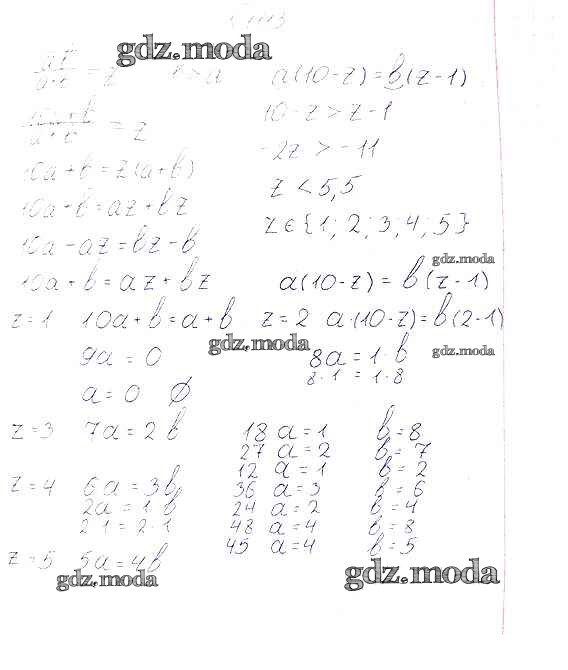 gdz.moda
a(10-z) = b(z-1)
10-z > z-1
-2z > -11
z < 5,5
z ∈ {1; 2; 3; 4; 5}
= z
10a + b = z(a+b)
10a + b = az + bz
10a - az = bz - b
gdz.moda
10a + b = az + bz a(10-z) = b(z-1)
z=1 10a+b = a+b z=2 a·(10-z) = b(2-1)
gdz.moda
9a = 0 8a = 1·b gdz.moda
8·1 = 1·8
a = 0 ∅
z=3 7a = 2b 18 a=1 b=8
27 a=2 b=7
12 a=1 b=2
z=4 6a = 3b 36 a=3 b=6
2a = 1·b 24 a=2 b=4
2·1 = 2·1 48 a=4 b=8
45 a=4 b=5
z=5 5a = 4b
gdz.moda gdz.moda